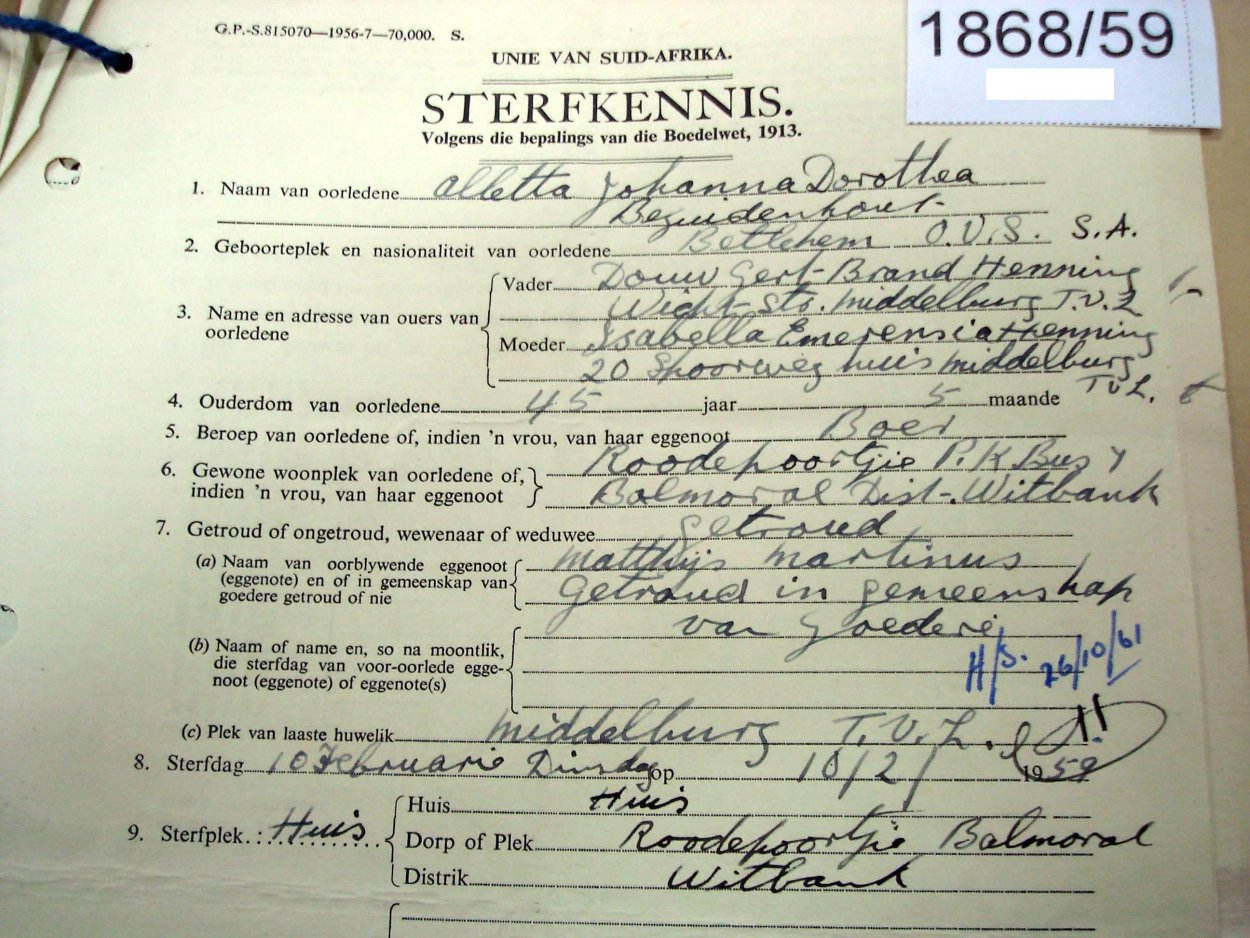 G.P.-S.815070—1956-7—70,000. S.
1868/59
UNIE VAN SUID-AFRIKA.
STERFKENNIS.
Volgens die bepalings van die Boedelwet, 1913.
1. Naam van oorledene Alletta Johanna Dorothea
Bezuidenhout
2. Geboorteplek en nasionaliteit van oorledene Betlehem O.V.S. S.A.
3. Name en adresse van ouers van oorledene
Vader Douw Gert Brand Henning
str. Middelburg T.V.L
Moeder Isabella Emerensia Henning
20 Spoorweg huis Middelburg
TVL.
4. Ouderdom van oorledene 45 jaar 5 maande
5. Beroep van oorledene of, indien 'n vrou, van haar eggenoot Boer
6. Gewone woonplek van oorledene of, indien 'n vrou, van haar eggenoot
Roodepoortjie P.K. Bus
Balmoral Dist. Witbank
7. Getroud of ongetroud, wewenaar of weduwee getroud
(a) Naam van oorblywende eggenoot (eggenote) en of in gemeenskap van goedere getroud of nie
Matthijs Martinus
Getroud in gemeenskap
van Goedere
(b) Naam of name en, so na moontlik, die sterfdag van voor-oorlede eggenoot (eggenote) of eggenote(s)
H/S. 26/10/61
(c) Plek van laaste huwelik Middelburg T.V.L.
8. Sterfdag 10 Februarie Dinsdag op 10/2/ 1959
9. Sterfplek.: Huis
Huis Huis
Dorp of Plek Roodepoortjie Balmoral
Distrik Witbank